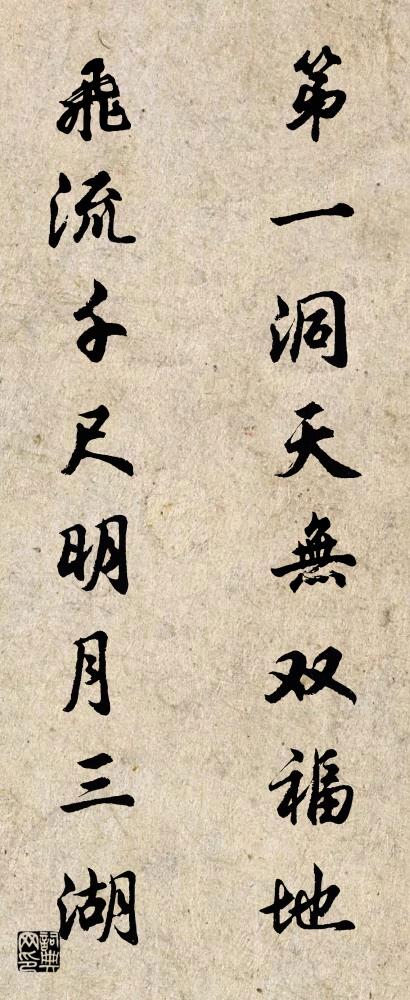 第一洞天無双福地
飛流千尺明月三湖